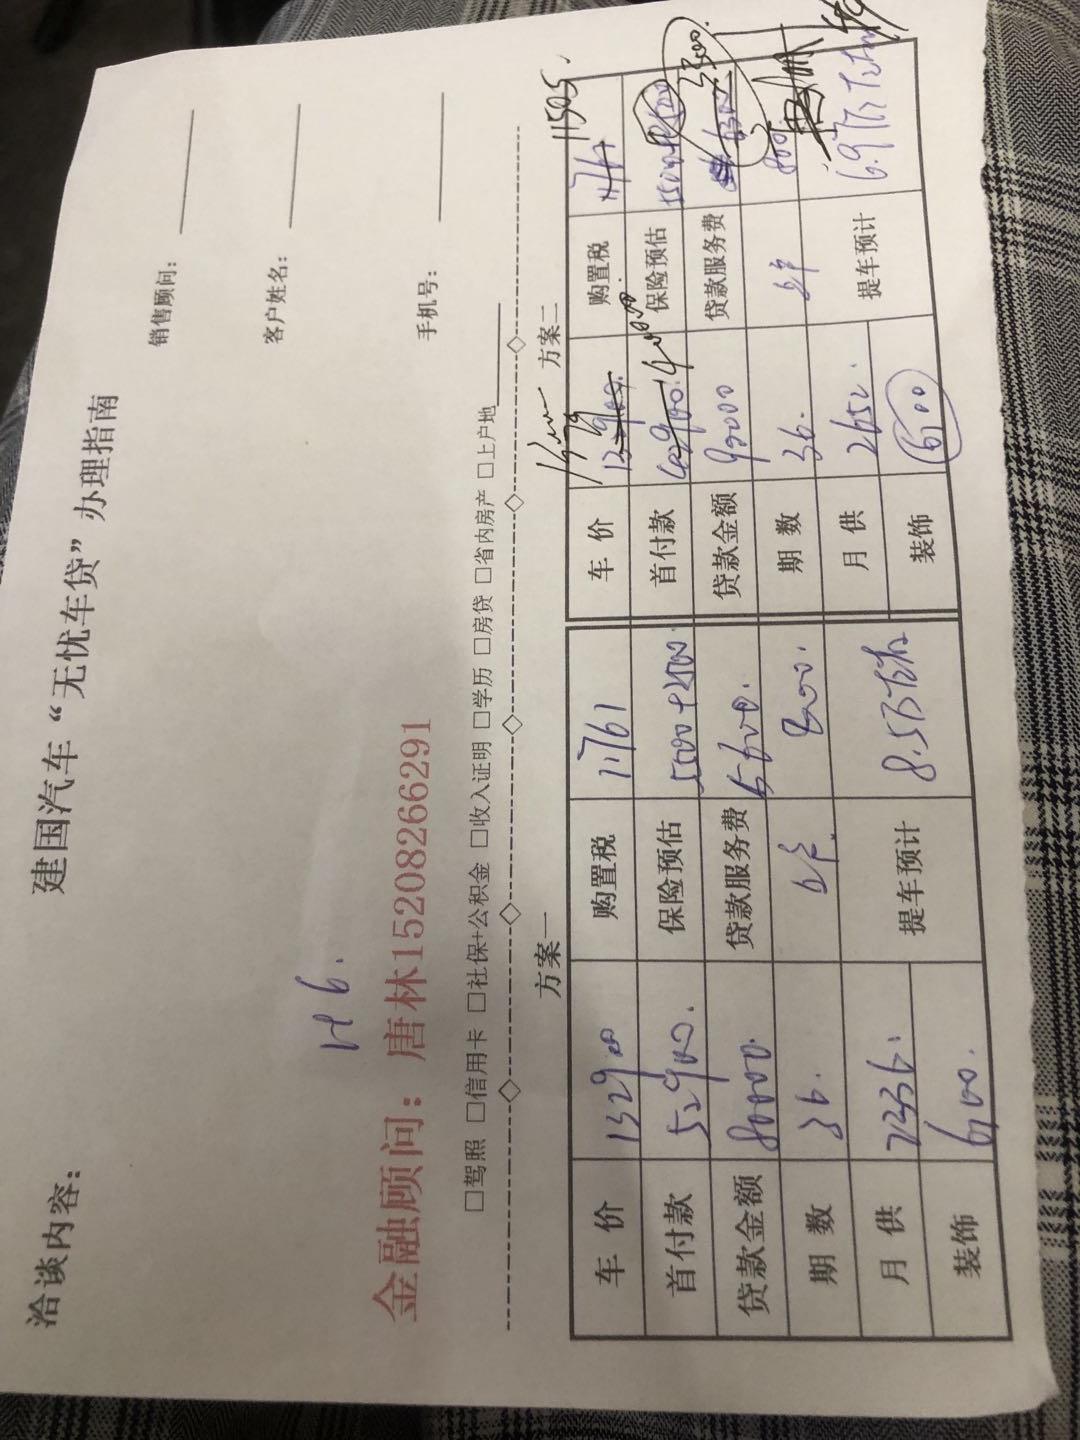 建国汽车“无忧车贷”办理指南
洽谈内容：
销售顾问：
客户姓名：
手机号：
H6.
金融顾问：唐林15208266291
□驾照 □信用卡 □社保+公积金 □收入证明 □学历 □房贷 □省内房产 □上户地
方案一
车 价 132900 购置税 11761
首付款 52900. 保险预估 5000+2500.
贷款金额 80000. 贷款服务费 5600.
期 数 36. 上户. 800.
月 供 2336. 提车预计 8.5万左右
装饰 6100.
方案二
车 价 购置税 11761 11505.
首付款 保险预估
贷款金额 90000 贷款服务费 6300 3300
期 数 36. 上户 800.
月 供 2652. 提车预计 6.9万
装饰 6100